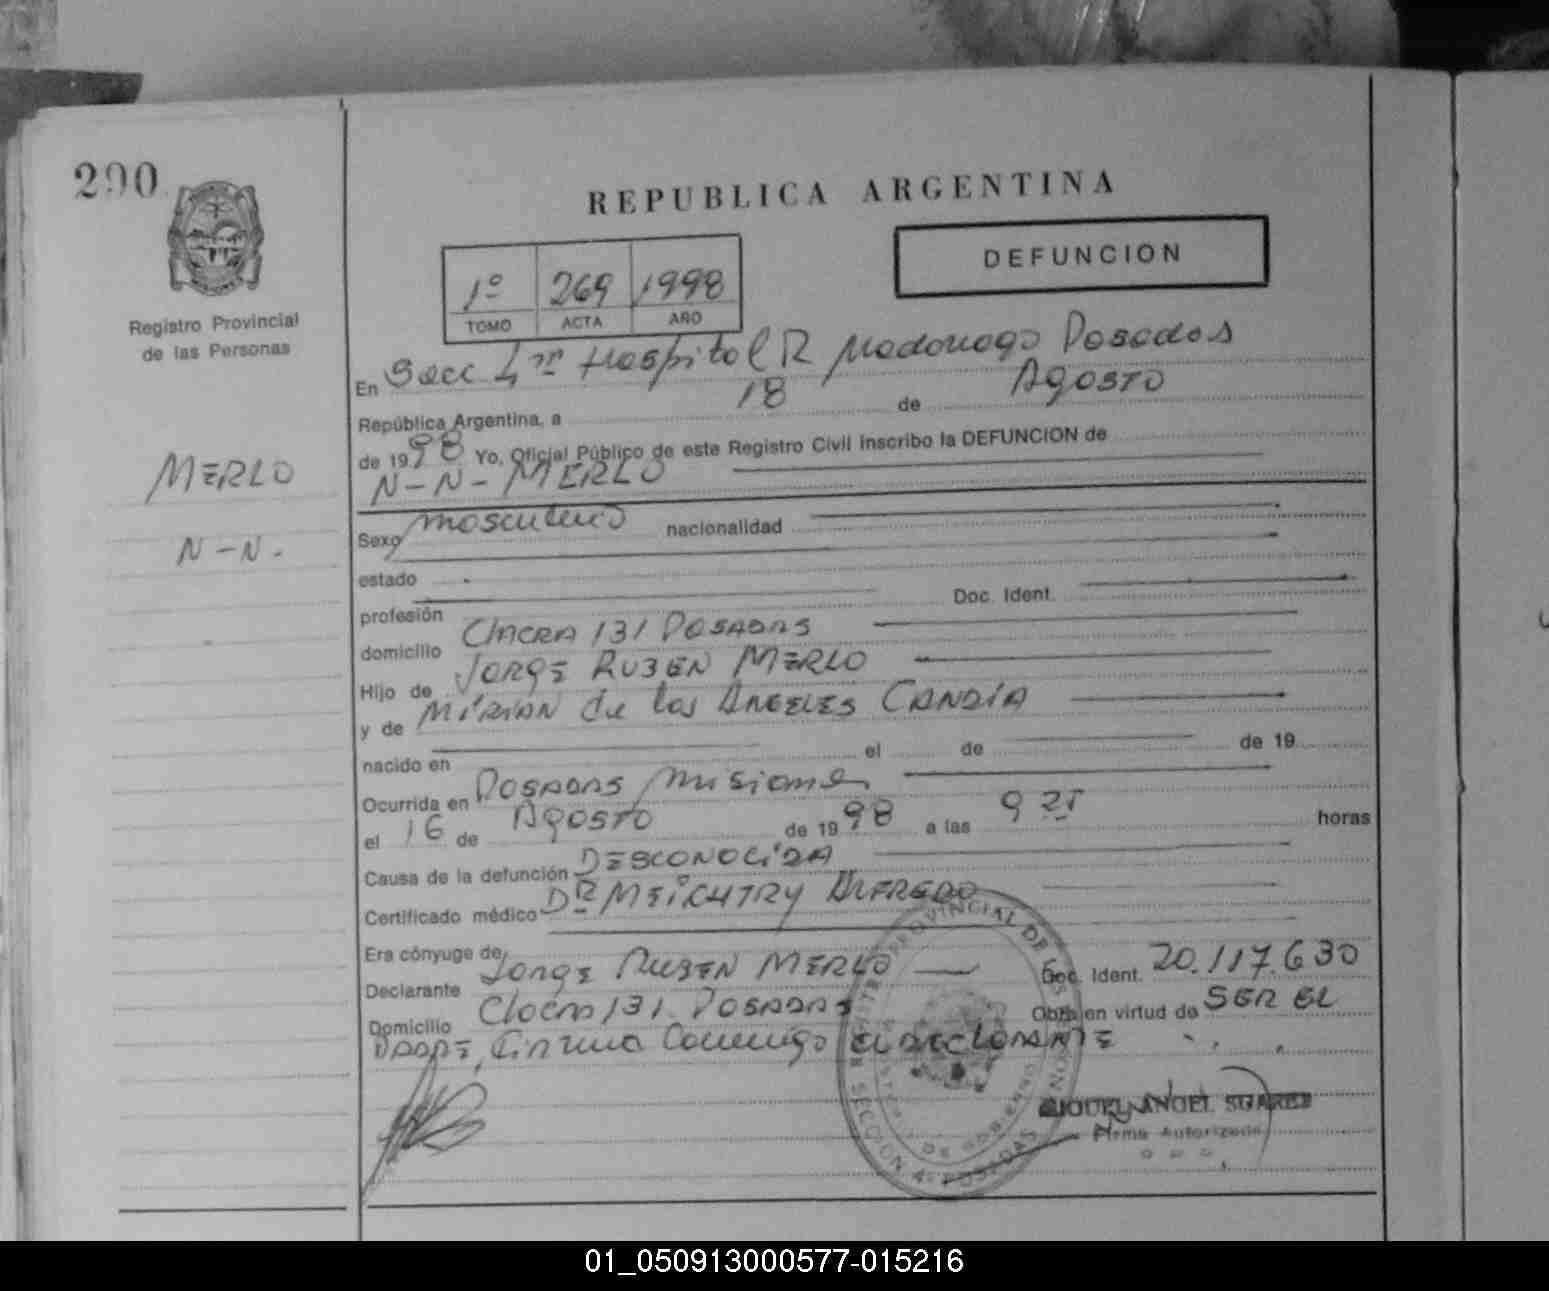 290
Registro Provincial
de las Personas
MERLO
N-N.
REPUBLICA ARGENTINA
DEFUNCION
1º 269 1998
TOMO ACTA AÑO
En Secc 4ta Hospital R Madariaga Posadas
República Argentina, a 18 de Agosto
de 1998 Yo, Oficial Público de este Registro Civil inscribo la DEFUNCION de
N-N- MERLO
Sexo masculino nacionalidad
estado
profesión Doc. Ident.
domicilio CHACRA 131 POSADAS
Hijo de JORGE RUBEN MERLO
y de MIRIAN de los ANGELES CANDIA
nacido en el de de 19
Ocurrida en POSADAS, Misiones
el 16 de AGOSTO de 1998 a las 9 25 horas
Causa de la defunción DESCONOCIDA
Certificado médico DR MEICHTRY ALFREDO
Era cónyuge de
Declarante Jorge RUBEN MERLO Doc. Ident. 20.117.630
Domicilio Chacra 131. POSADAS Obra en virtud de SER EL
PADRE, Firma Conmigo el DECLARANTE
REGISTRO PROVINCIAL DE LAS PERSONAS
SECCION 4ª POSADAS
MINISTERIO DE GOBIERNO
MIGUEL ANGEL SUAREZ
Firma Autorizada
01_050913000577-015216